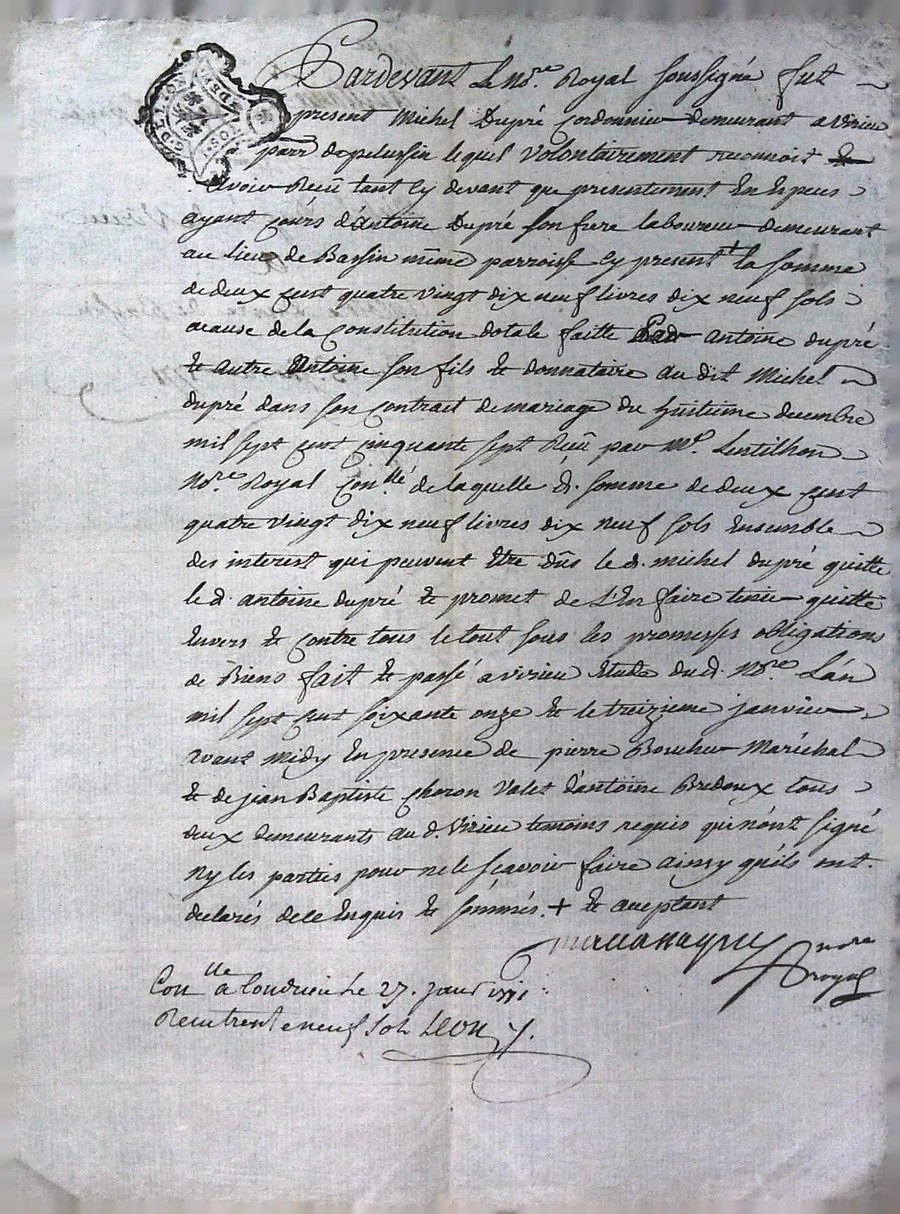 Pardevant Le No.re Royal soussigné fut
present Michel Dupré Cordonnier demeurant a virieu
parr. de pelussin lequel volontairement reconnoit
avoir Reçû tant cy devant que presentement En Especes
ayant cours d'antoine Dupré son frere laboureur demeurant
au lieu de Bassin même parroisse cy present + la somme
de deux cent quatre vingt dix neuf livres dix neuf sols
acause de la Constitution dotale faitte Par antoine dupré
& autre Antoine son fils & donnataire au dit Michel
dupré dans son contrait de mariage du huitieme decembre
mil sept cent cinquante sept Reçû par M.e Lentilhon
No.re Royal Con.llé de laquelle d. somme de deux cent
quatre vingt dix neuf livres dix neuf sols Ensemble
des interest qui peuvent Etre dûs le d. michel dupré quitte
le d. antoine dupré & promet de L'En faire tenir quitte
Envers & contre tous le tout sous les promesses obligations
de Biens fait & passé a virieu Etude du d. No.re L'an
mil sept cent soixante onze & le treizieme janvier
avant midy En presence de pierre Boucher Maréchal
& de jean Baptiste Choron Valet d'antoine Bredoux tous
deux demeurants au d. Virieu temoins requis qui n'ont signé
ny les parties pour ne le scavoir faire ainsy qu'ils ont
declarés de ce Enquis & sommés. + & aceptant
no.re
royal
Con.lle a Condrieu Le 27. janv. 1771
Recu trente neuf sols